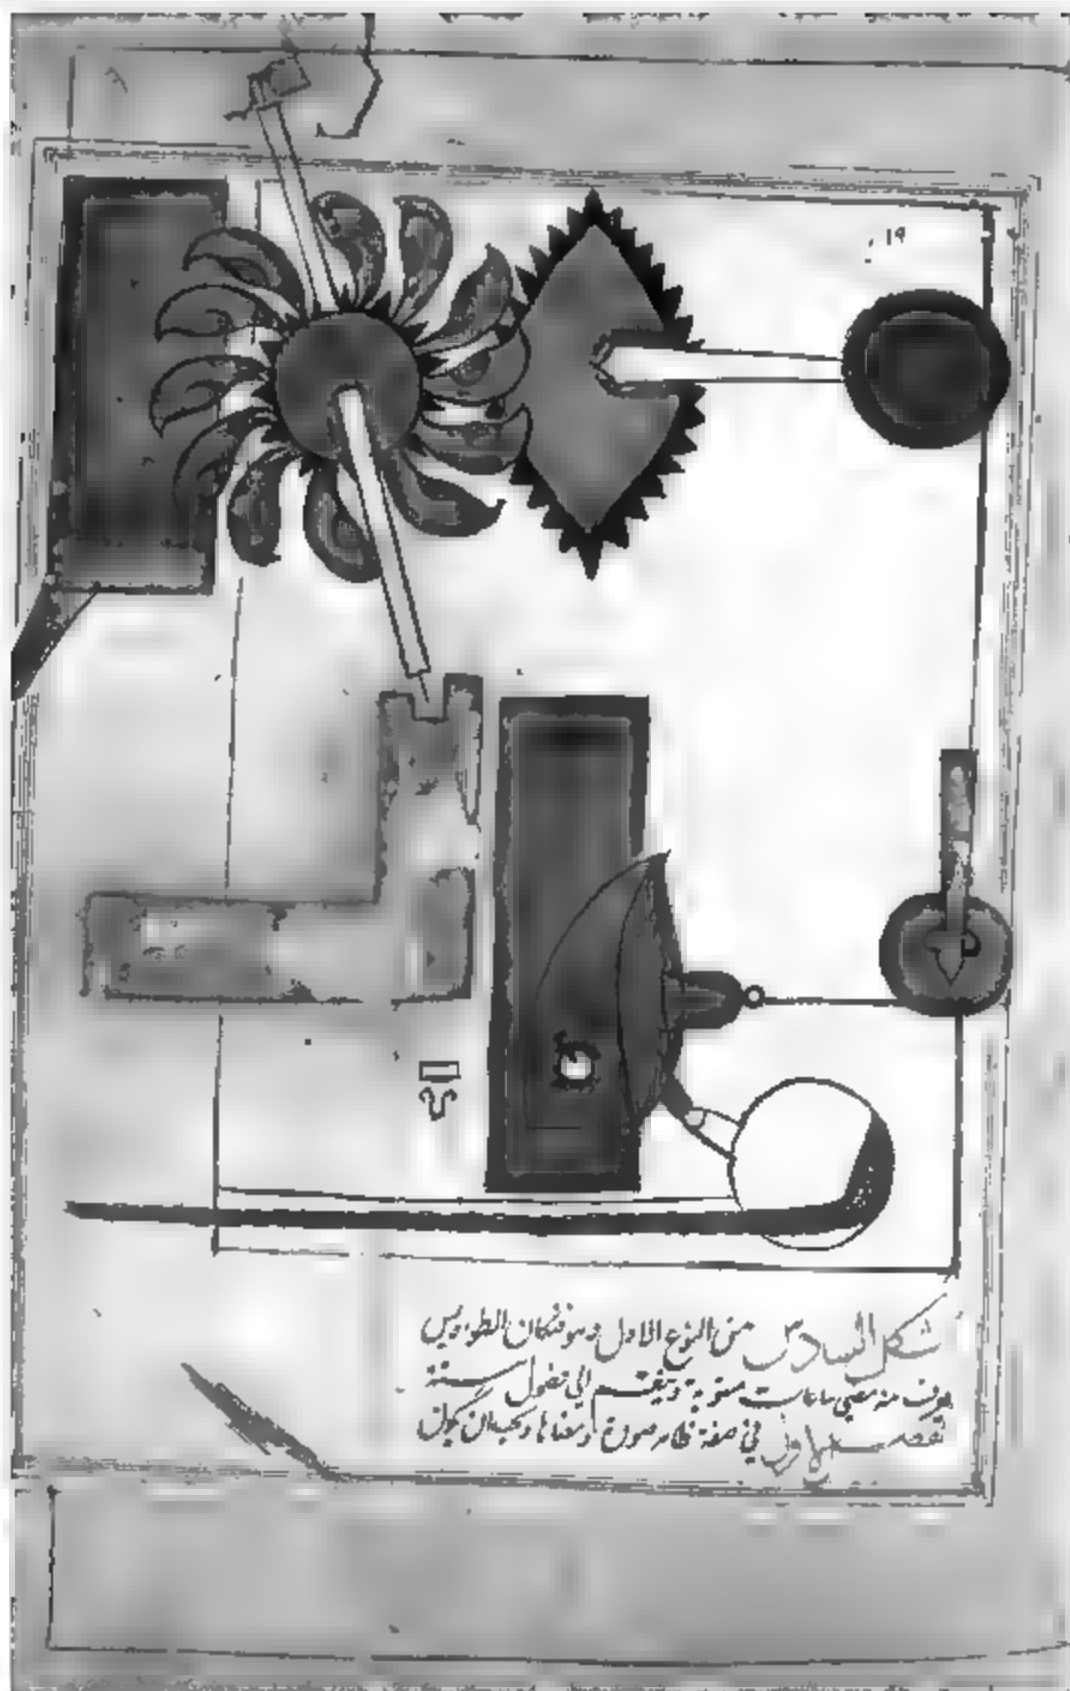 ١٩
شكل السادس من النوع الاول وهو فنكان الطواويس
يعرف منه مضي ساعات مستوية وينقسم الي فصول ستة
الفصل الاول في صفة ظاهر صورة ومعناها ويجب ان يكون